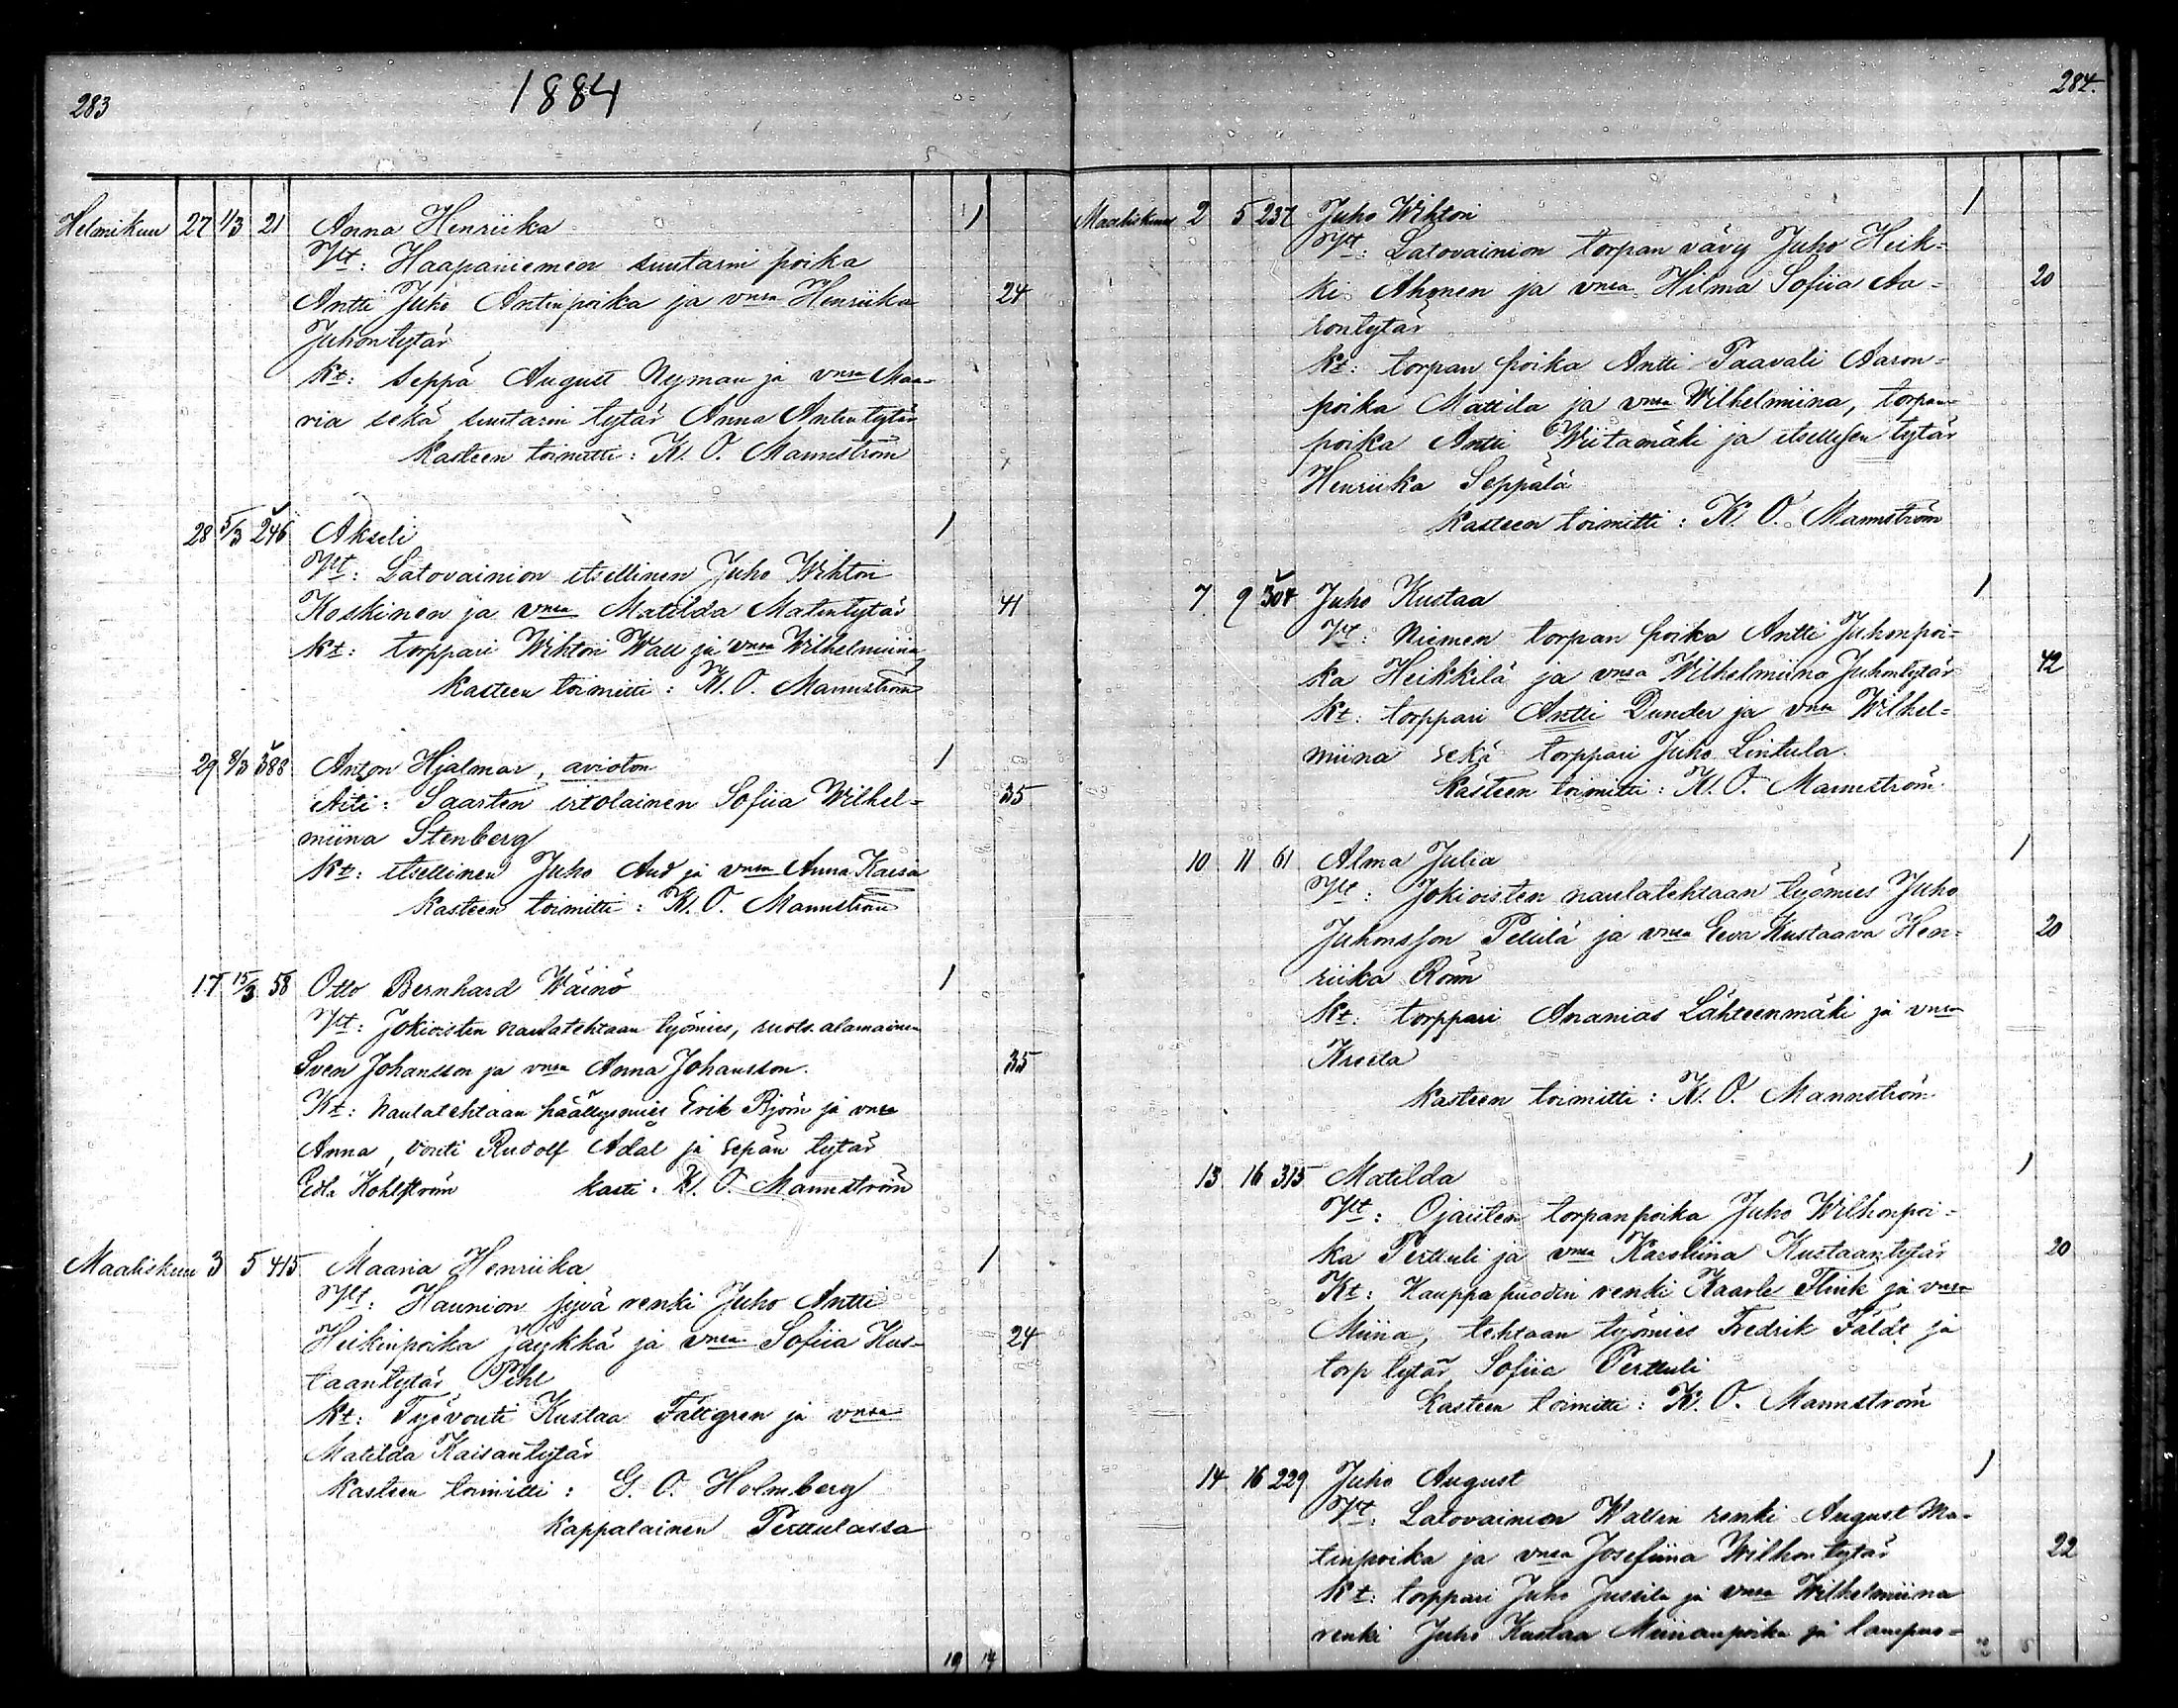 283
1884
Helmikuu 27 1/3 21 Anna Henriika 1
Vt: Haapaniemen suutarin poika
Antti Juho Antinpoika ja vmsa Henriika 24
Juhontytär
Kt: seppä August Nyman ja vmsa Maa-
ria sekä suutarin tytär Anna Antintytär
Kasteen toimitti: K. O. Mannström
28 5/3 246 Akseli 1
Vt: Latovainion itsellinen Juho Wihtori
Koskinen ja vmsa Matilda Matintytär 41
Kt: torppari Wihtori Wall ja vmsa Wilhelmiina
Kasteen toimitti: K. O. Mannström
29 9/3 388 Anton Hjalmar, avioton 1
Äiti: Saarten irtolainen Sofiia Wilhel= 35
miina Stenberg
Kt: itsellinen Juho Aud ja vmsa Anna Kaisa
Kasteen toimitti: K. O. Mannström
17 15/3 58 Otto Bernhard Wäinö 1
Vt: Jokioisten naulatehtaan työmies, ruots. alamainen
Sven Johansson ja vmsa Anna Johansson. 35
Kt: Naulatehtaan päällysmies Erik Björn ja vmsa
Anna, vouti Rudolf Adal ja sepän tytär
Edla Kohlström kasti: K. O. Mannström
Maaliskuu 3 5 415 Maaria Henriika 1
Vt: Haunion jyvä renki Juho Antti
Heikinpoika Jäykkä ja vmsa Sofiia Kus- 24
taantytär Pihl
Kt: Työvouti Kustaa Fältgren ja vmsa
Matilda Kaisantytär
Kasteen toimitti: G. O. Holmberg
Kappalainen Perttulassa
19 14
284.
Maaliskuu 2 5 237 Juho Wihtori 1
Vt: Latovainion torpan vävy Juho Heik=
ki Ahonen ja vmsa Hilma Sofiia Aa= 20
rontytär
Kt: torpan poika Antti Paavali Aaron=
poika Mattila ja vmsa Wilhelmiina, torpan
poika Antti Wiitamäki ja itsellisen tytär
Henriika Seppälä
Kasteen toimitti: K. O. Mannström
7 9 304 Juho Kustaa 1
Vt: Niemen torpan poika Antti Juhonpoi=
ka Heikkilä ja vmsa Wilhelmiina Juhontytär 42
Kt: torppari Antti Dunder ja vmsa Wilhel=
miina sekä torppari Juho Lintula.
Kasteen toimitti: K. O. Mannström.
10 11 61 Alma Julia 1
Vt: Jokioisten naulatehtaan työmies Juho
Juhonsson Pellilä ja vmsa Eeva Kustaava Hen= 20
riika Rönn
Kt: torppari Ananias Lähteenmäki ja vmsa
Kreeta
Kasteen toimitti: K. O. Mannström
13 16 315 Matilda 1
Vt: Ojaisten torpanpoika Juho Wilhonpoi=
ka Perttuli ja vmsa Karoliina Kustaantytär 20
Kt: Kauppapuodin renki Kaarle Flink ja vmsa
Miina, tehtaan työmies Fredrik Fäldt ja
torp tytär Sofiia Perttuli
Kasteen toimitti: K. O. Mannström
14 16 229 Juho August 1
Vt: Latovainion Wallin renki August Ma=
tinpoika ja vmsa Josefiina Wilhontytär 22
Kt: torppari Juho Jussila ja vmsa Wilhelmiina
renki Juho Kustaa Miinanpoika ja